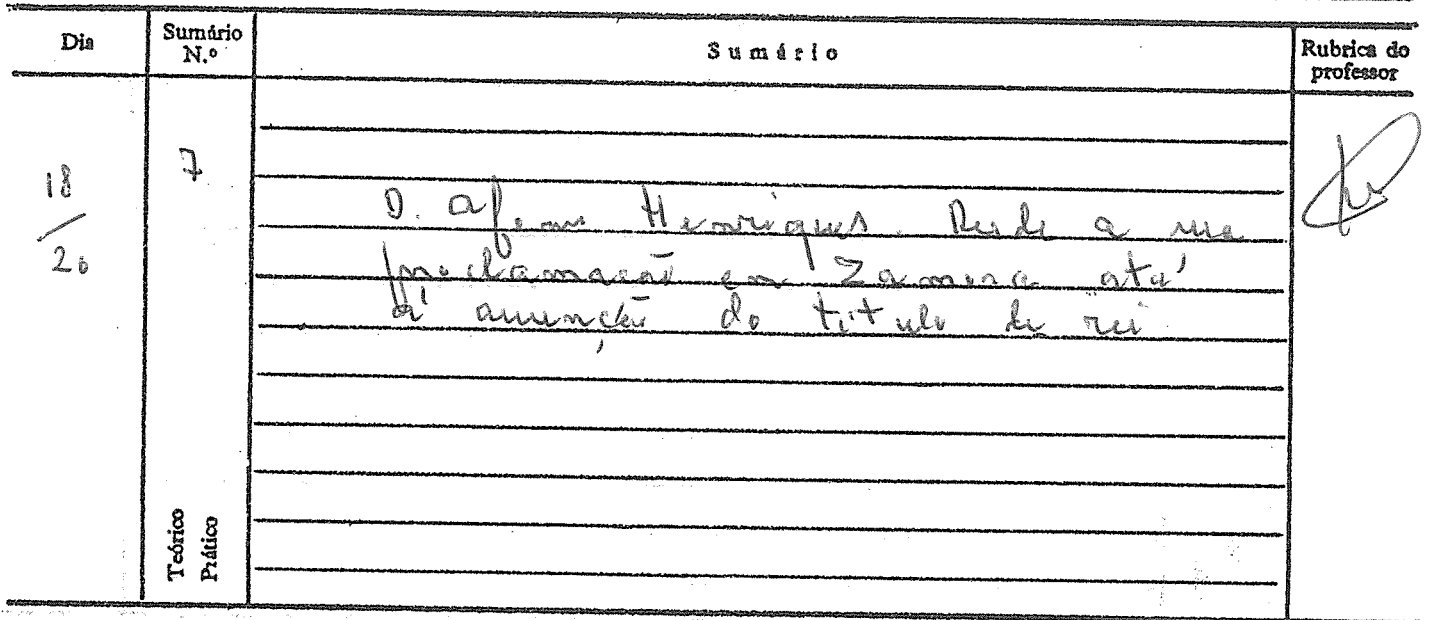 Dia
Sumário N.º
Sumário
Rubrica do professor
18/20
7
D. Afonso Henriques. Desde a sua
proclamação em Zamora até
à assunção do título de rei
Teórico
Prático